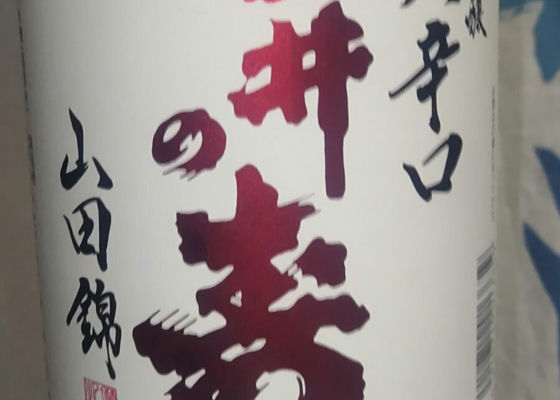 辛口
井の寿
山田錦